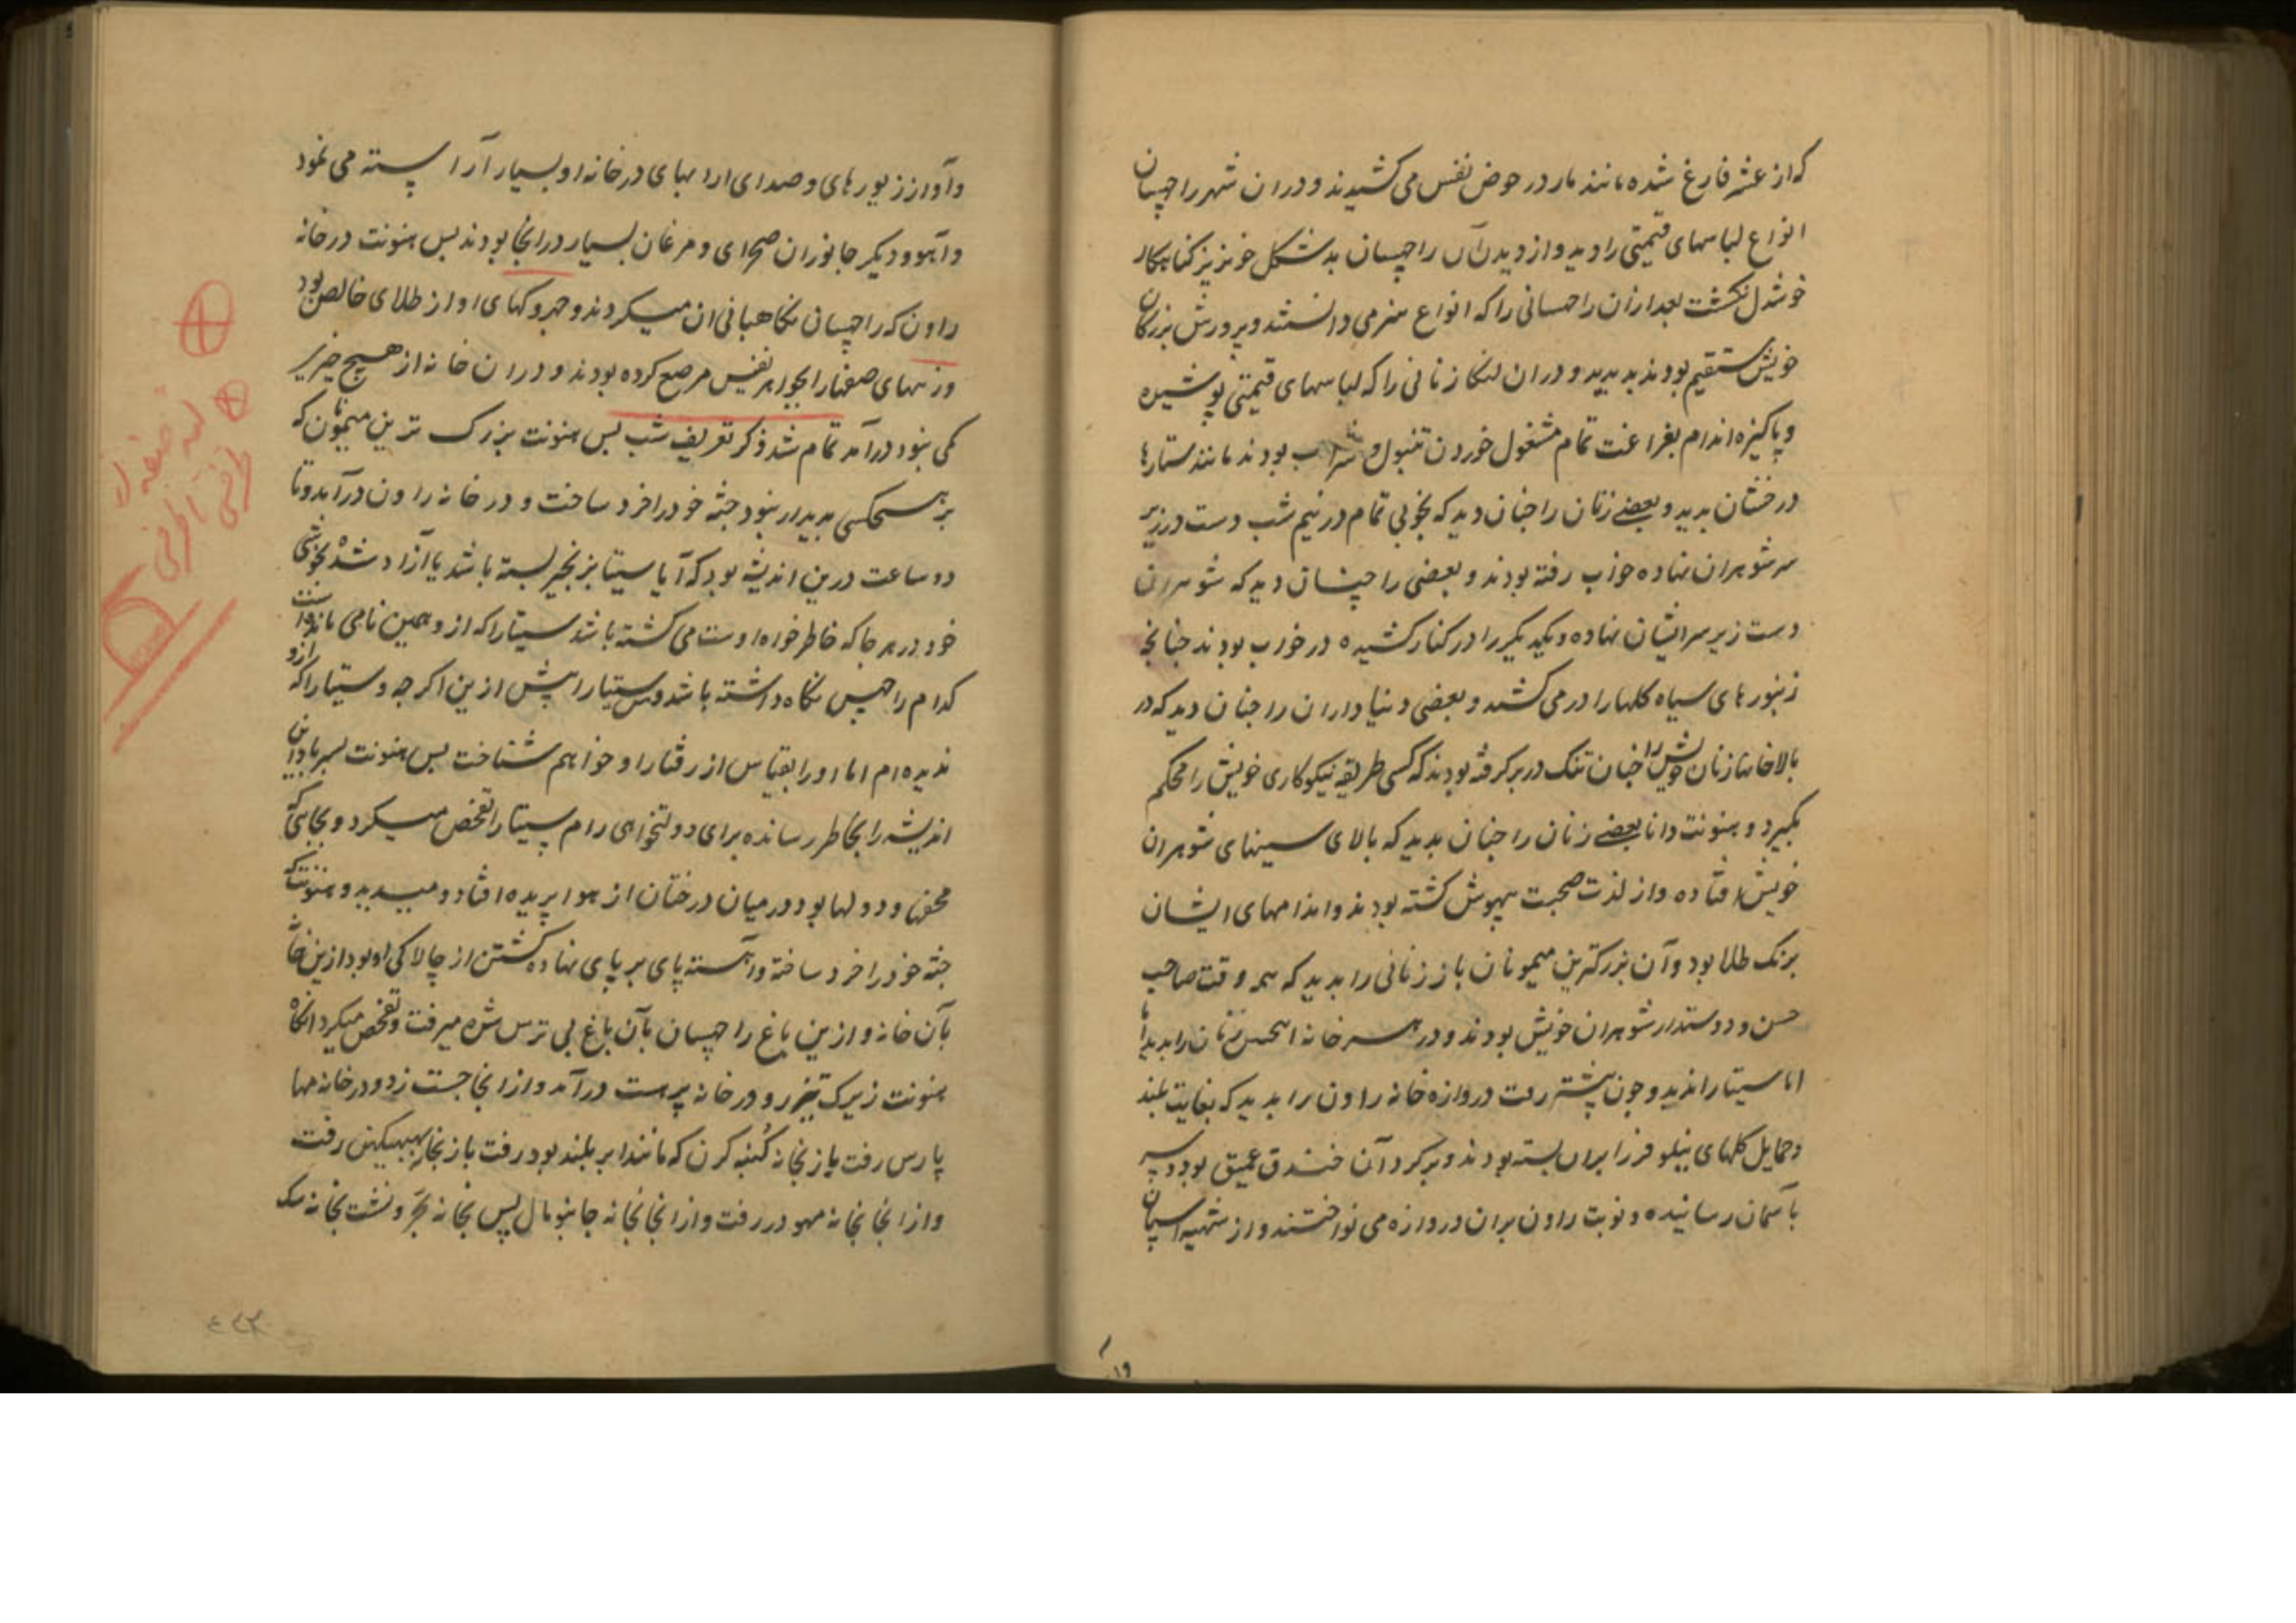 که از عشر فارغ شده مانند مار در حوض نفس می کشیدند و در ان شهر راچهسان
انواع لباسهای قیمتی را دید و از دیدن آن راچهسان بد شکل خونریز کناهکار
خوشدل نکشت بعد ازان راجهسانی را که انواع هنر می دانستند و پرورش بزرکان
خویش مستقیم بودند بدید و دران لنکا زنانی را که لباسهای قیمتی پوشیده
و پاکیزه اندام بفراغت تمام مشغول خوردن تنبول و شراب بودند مانند ستارها
درخشان بدید و بعضے زنان را جنان دید که بخوبی تمام در نیم شب دست در زیر
سر شوهران نهاده خواب رفته بودند و بعضی را چنان دید که شوهران
دست زیر سر ایشان نهاده و یکدیکر را در کنار کشیده در خواب بودند جنانجه
زنبورهای سیاه کلها را در می کشند و بعضی دنیاداران را جنان دید که در
بالاخانها زنان خویش را جنان تنک در بر کرفته بودند که کسی طریقه نیکوکاری خویش را محکم
بکیرد و هنونت دانا بعضے زنان را جنان بدید که بالای سینهای شوهران
خویش افتاده و از لذت صحبت بیهوش کشته بودند و اندامهای ایشان
برنک طلا بود و آن بزرکترین میمونان باز زنانی را بدید که همه وقت صاحب
حسن و دوستدار شوهران خویش بودند و در هر خانه زنان را بدید
اما سیتا را ندید و جون پیشتر رفت دروازه خانه راون را بدید که بغایت بلند
و حمایل کلهای نیلوفر را بران بسته بودند و بر کرد آن خندق عمیق بود و سر
بآسمان رسانیده و نوبت راون بران دروازه می نواختند و از شیهه اسپان
وا
و آواز زیورهای و صدای ارابهای در خانه او بسیار آراسته می نمود
و آهو و دیکر جانوران صحرای و مرغان بسیار در انجا بودند پس هنونت در خانه
راون که راچهسان نکاهبانی ان میکردند و جهروکهای او از طلای خالص بود
و زینهای صفها را بجواهر نفیس مرصع کرده بودند و در ان خانه از هیچ چیز
کمی نبود درآمد تمام شد ذکر تعریف شب پس هنونت بزرک ترین میمونان که
بر هیچکس پدیدار نبود جثه خود را خرد ساخت و در خانه راون درآمد و تا
دو ساعت درین اندیشه بود که آیا سیتا بزنجیر بسته باشد یا آزاد شده بخوشی
خود در هر جا که خاطر خواه اوست می کشته باشد سیتا را که ازو همین نامی مانده است
کدام راجهس نکاه داشته باشد و من سیتا را پیش ازین اکرجه
ندیده ام اما او را بقیاس از رفتار او خواهم شناخت پس هنونت پسر باد این
اندیشه را بخاطر رسانده برای دولتخواهی رام سیتا را تفحص میکرد و بجایی که
محفها و دولها بود و در میان درختان از هوا پریده افتاد و میدید و هنونت که
جثه خود را خرد ساخته و آهسته پای بر پای نهاده کشتن از چالاکی او بود ازین خانه
بآن خانه و ازین باغ راچهسان بآن باغ بی ترس شده میرفت و تفحص میکرد انکاه
هنونت زیرک تیزرو در خانه پرهست درآمد و از انجا جست زد و در خانه مها
پارس رفت باز بخانه کنبه کرن که مانند ابر بلند بود رفت باز بخانه ببهیکهن رفت
و از انجا بخانه مهودر رفت و از انجا بخانه جانبومال پس بخانه بجر ونشت بخانه سک